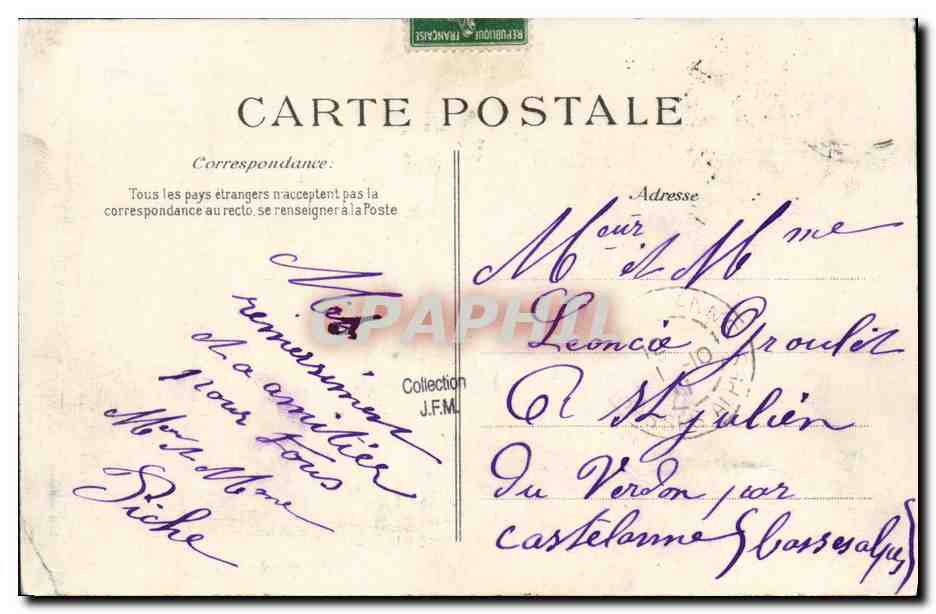 REPUBLIQUE FRANÇAISE
CARTE POSTALE
Correspondance:
Tous les pays étrangers n'acceptent pas la
correspondance au recto, se renseigner à la Poste
Adresse
Meur et Mme
Leoncie Groulet
A St julien
du Verdon par
castelanne (basses alpes)
Mes
remersiment
et amitiér
pour tous
Mr et Mme
Piche
Collection
J.F.M.
CPAPHIL